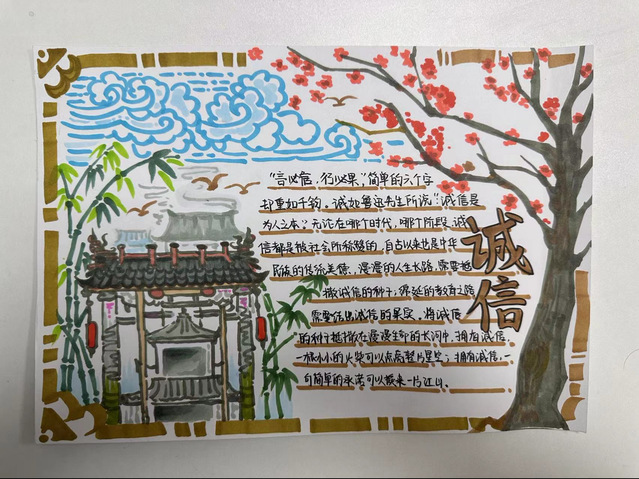 "言必信,行必果,"简单的六个字
却重如千钧。诚如鲁迅先生所说:"诚信是
为人之本",无论在哪个时代,哪个阶段,诚
信都是被社会所称赞的,自古以来也是中华
民族的传统美德。漫漫的人生长路,需要播
撒诚信的种子;绵延的教育之路
需要结出诚信的果实。将诚信
的种子播撒在漫漫生命的长河中。拥有诚信,
一根小小的火柴可以点亮整片星空;拥有诚信,一
句简单的承诺可以撑来一片江山。
诚信